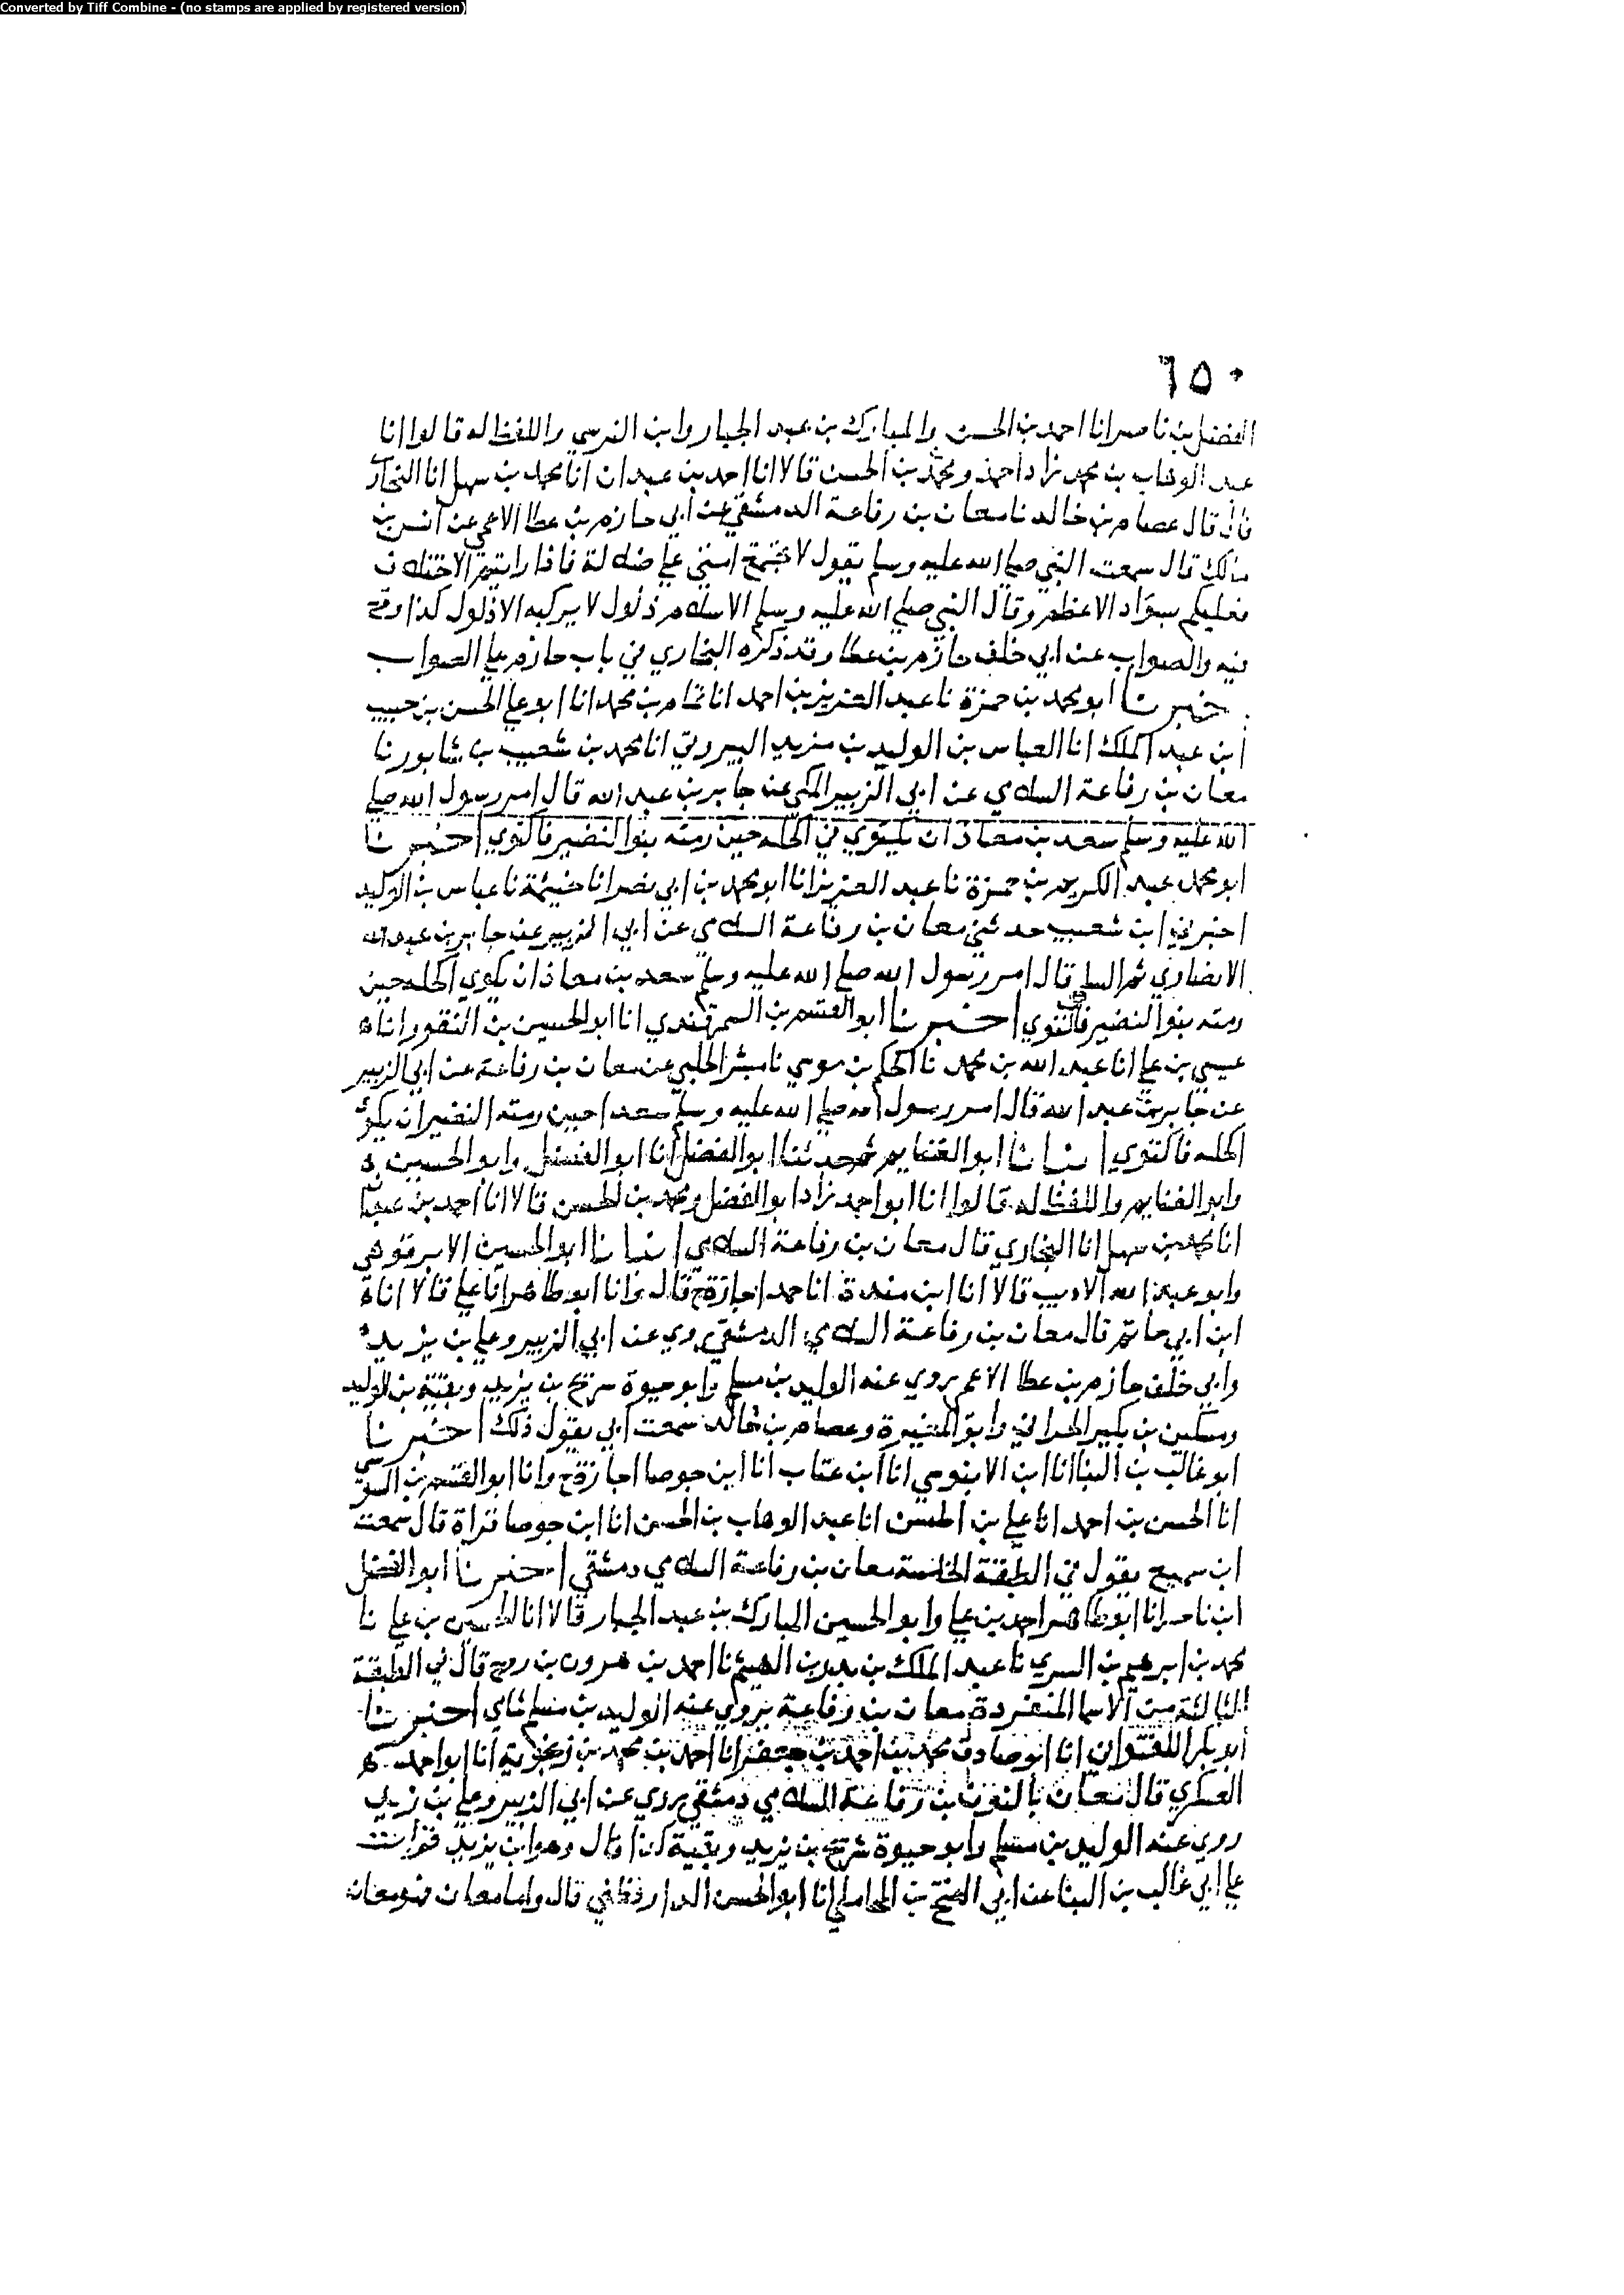 Converted by Tiff Combine - (no stamps are applied by registered version)
٦٥٠
الفضل بن ناصر انا احمد بن الحسن والمبارك بن عبد الجبار وابن النرسي واللفظ له قالوا انا
عبد الوهاب بن محمد زاد احمد ومحمد بن الحسن قالا انا احمد بن عبدان انا محمد بن سهل انا البخاري
قال قال عصام بن خالد نا معان بن رفاعة الدمشقي عن ابي حازم بن عطا الاعمى عن انس بن
مالك قال سمعت النبي صلى الله عليه وسلم يقول لا تجتمع امتي على ضلالة فاذا رايتم الاختلاف
فعليكم بسواد الاعظم وقال النبي صلى الله عليه وسلم الاسلام ذلول لا يركبه الا ذلول كذا وقع
فيه والصواب عن ابي خلف حازم بن عطا وقد ذكره البخاري في باب حازم على الصواب
خبرنا ابو محمد بن حمزة نا عبد العزيز بن احمد انا تمام بن محمد انا ابو علي الحسن بن حبيب
ابن عبد الملك انا العباس بن الوليد بن مزيد البيروتي انا محمد بن شعيب بن شابور نا
معان بن رفاعة السلامي عن ابي الزبير المكي عن جابر بن عبد الله قال امر رسول الله صلى
الله عليه وسلم سعد بن معاذ ان يكتوي في اكحله حين رمته بنو النضير فاكتوي اخبرنا
ابو محمد عبد الكريم بن حمزة نا عبد العزيز انا ابو محمد بن ابي نصر انا خيثمة نا عباس بن الوليد
اخبرني ابن شعيب حدثني معان بن رفاعة السلامي عن ابي الزبير عن جابر بن عبد الله
الانصاري ثم السلمي قال امر رسول الله صلى الله عليه وسلم سعد بن معاذ ان يكوي اكحله حين
رمته بنو النضير فاكتوي اخبرنا ابو القسم بن السمرقندي انا ابو الحسين بن النقور انا
عيسي بن علي انا عبد الله بن محمد نا الحكم بن موسي نا مبشر الحلبي عن معان بن رفاعة عن ابي الزبير
عن جابر بن عبد الله قال امر رسول الله صلى الله عليه وسلم سعدا حين رمته النضير ان يكوي
اكحله فاكتوي انبانا ابو الغنايم ثم حدثنا ابو الفضل انا ابو الفضل وابو الحسين
وابو الغنايم واللفظ له قالوا انا ابو احمد زاد ابو الفضل ومحمد بن الحسن قالا انا احمد بن عبدان
انا محمد بن سهل انا البخاري قال معان بن رفاعة السلامي انبانا ابو الحسين الابرقوهي
وابو عبد الله الاديب قالا انا ابن مندة انا حمد اجازة ح قال وانا ابو طاهر انا علي قالا انا
ابن ابي حاتم قال معان بن رفاعة السلامي الدمشقي روي عن ابي الزبير وعلي بن يزيد
وابي خلف حازم بن عطا الاعمى روي عنه الوليد بن مسلم وابو حيوة شريح بن يزيد وبقية بن الوليد
ومسكين بن بكير الحراني وابو المغيرة وعصام بن خالد سمعت ابي يقول ذلك اخبرنا
ابو غالب بن البنا انا ابن الابنوسي انا ابن عتاب انا ابن جوصا اجازة ح وانا ابو القسم بن السوسي
انا الحسن بن احمد انا علي بن الحسن انا عبد الوهاب بن الحسن انا ابن جوصا قراة قال سمعت
ابن سميع يقول في الطبقة الخامسة معان بن رفاعة السلامي دمشقي اخبرنا ابو الفضل
ابن ناصر انا ابو طاهر احمد بن علي وابو الحسين المبارك بن عبد الجبار قالا انا الحسين بن علي نا
محمد بن ابرهيم بن السري نا عبد الملك بن بدر بن الهيثم نا احمد بن هرون بن روح قال في الطبقة
الثالثة من الاسما المنفردة معان بن رفاعة يروي عنه الوليد بن مسلم شامي اخبرنا
ابو بكر اللفتواني انا ابو صادق محمد بن احمد بن جعفر انا احمد بن محمد بن زنجوية انا ابو احمد
العسكري قال معان بالنون بن رفاعة السلامي دمشقي روي عن ابي الزبير وعلي بن زيد
روي عنه الوليد بن مسلم وابو حيوة شريح بن يزيد وبقية كذا قال وهو ابن يزيد قرات
على ابي غالب بن البنا عن ابي الفتح بن المحاملي انا ابو الحسن الدارقطني قال واما معان فهو معان